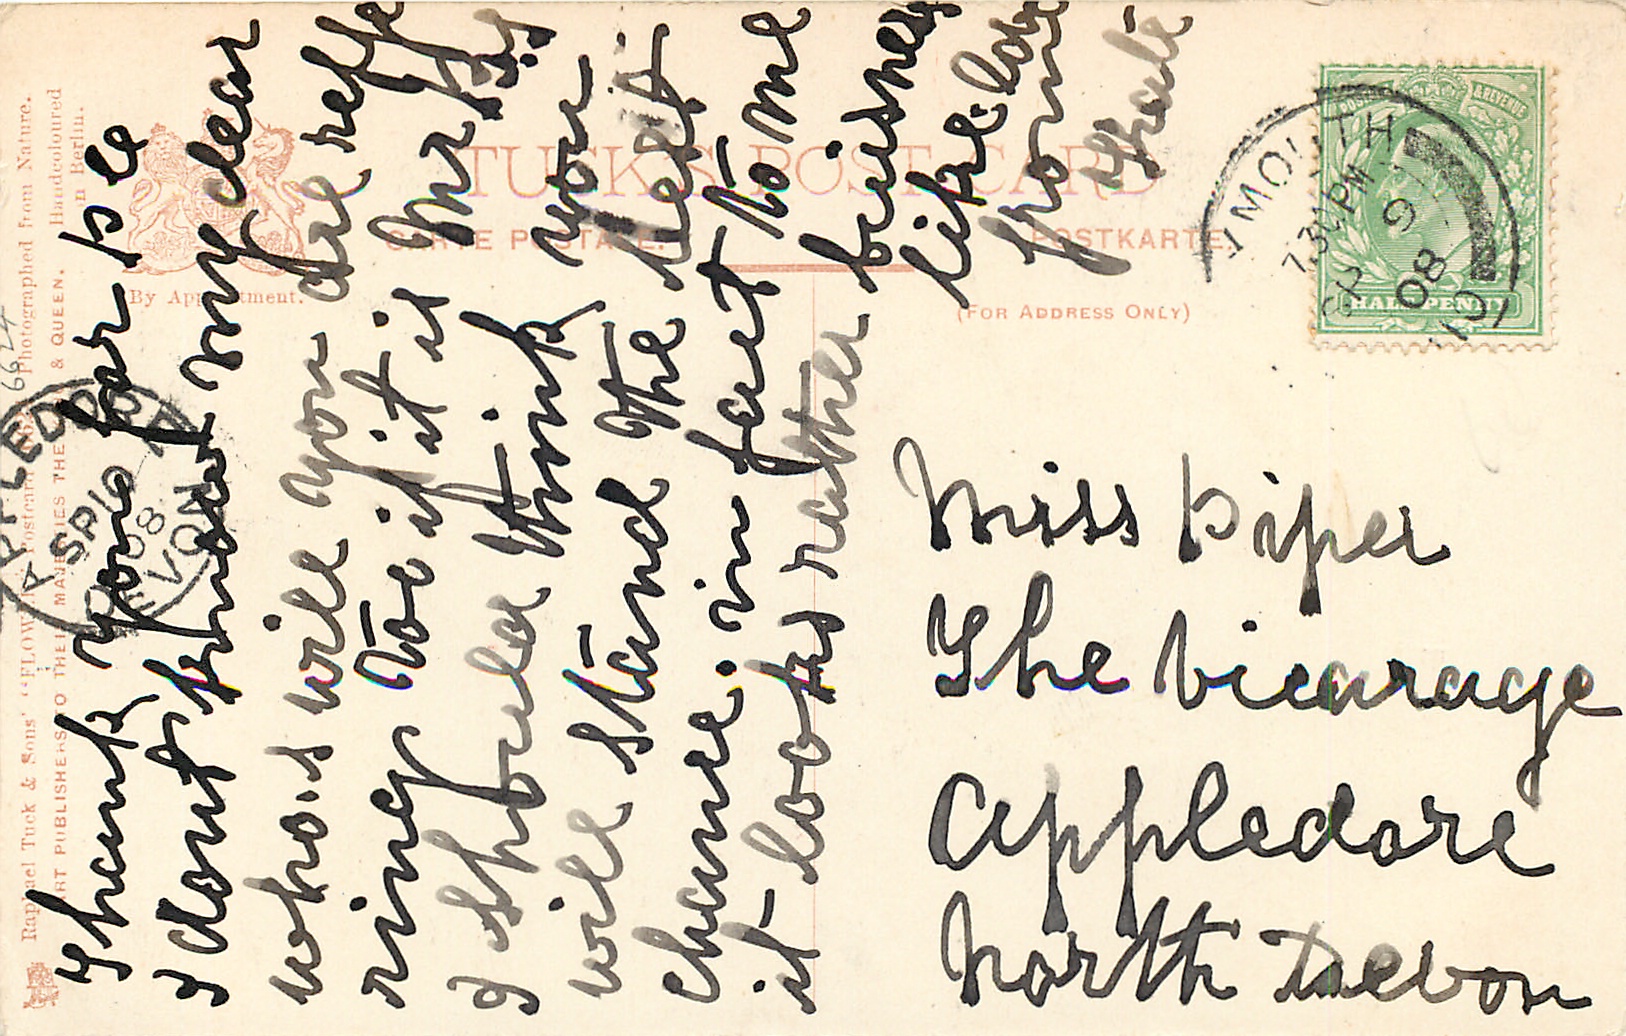 Raphael Tuck & Sons' "FLOW Postcard Photographed from Nature.
ART PUBLISHERS TO THEIR MAJESTIES THE & QUEEN. Handcoloured
in Berlin.
By Appointment.
TUCK'S POST CARD
CARTE POSTALE. POSTKARTE.
(FOR ADDRESS ONLY)
6624
APPLEDORE
A
SP 10
08
DEVON
YMOUTH
7.30 PM
SP 9
08
101
POSTAGE & REVENUE
HALFPENNY
Thank you for
I dont know my dear
whos will you are reffe
ring to if it is Mr
I should think you
will stand the best
chance. in fact to me
it looks rather buisness
like. love
from
Miss Piper
The Vicarage
Appledore
North Devon